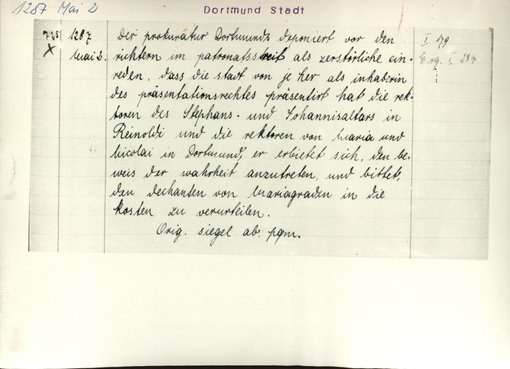 1287 Mai 2
Dortmund Stadt
1287.
Mai 2.
Der prokuratur Dortmunds deponiert vor den
richtern im patronatsstreit als zerstörliche ein-
reden, dass die stadt von je her als inhaberin
des präsentationsrechtes präsentirt hat die rek-
toren des Stephans- und Johannisaltars in
Reinoldi und die rektoren von Maria und
Nicolai in Dortmund, er erbietet sich, den be-
weis der wahrheit anzutreten, und bittet,
den dechanten von Mariagraden in die
kosten zu verurteilen.
Orig. siegel ab. pgm.
I 179
Erg. I